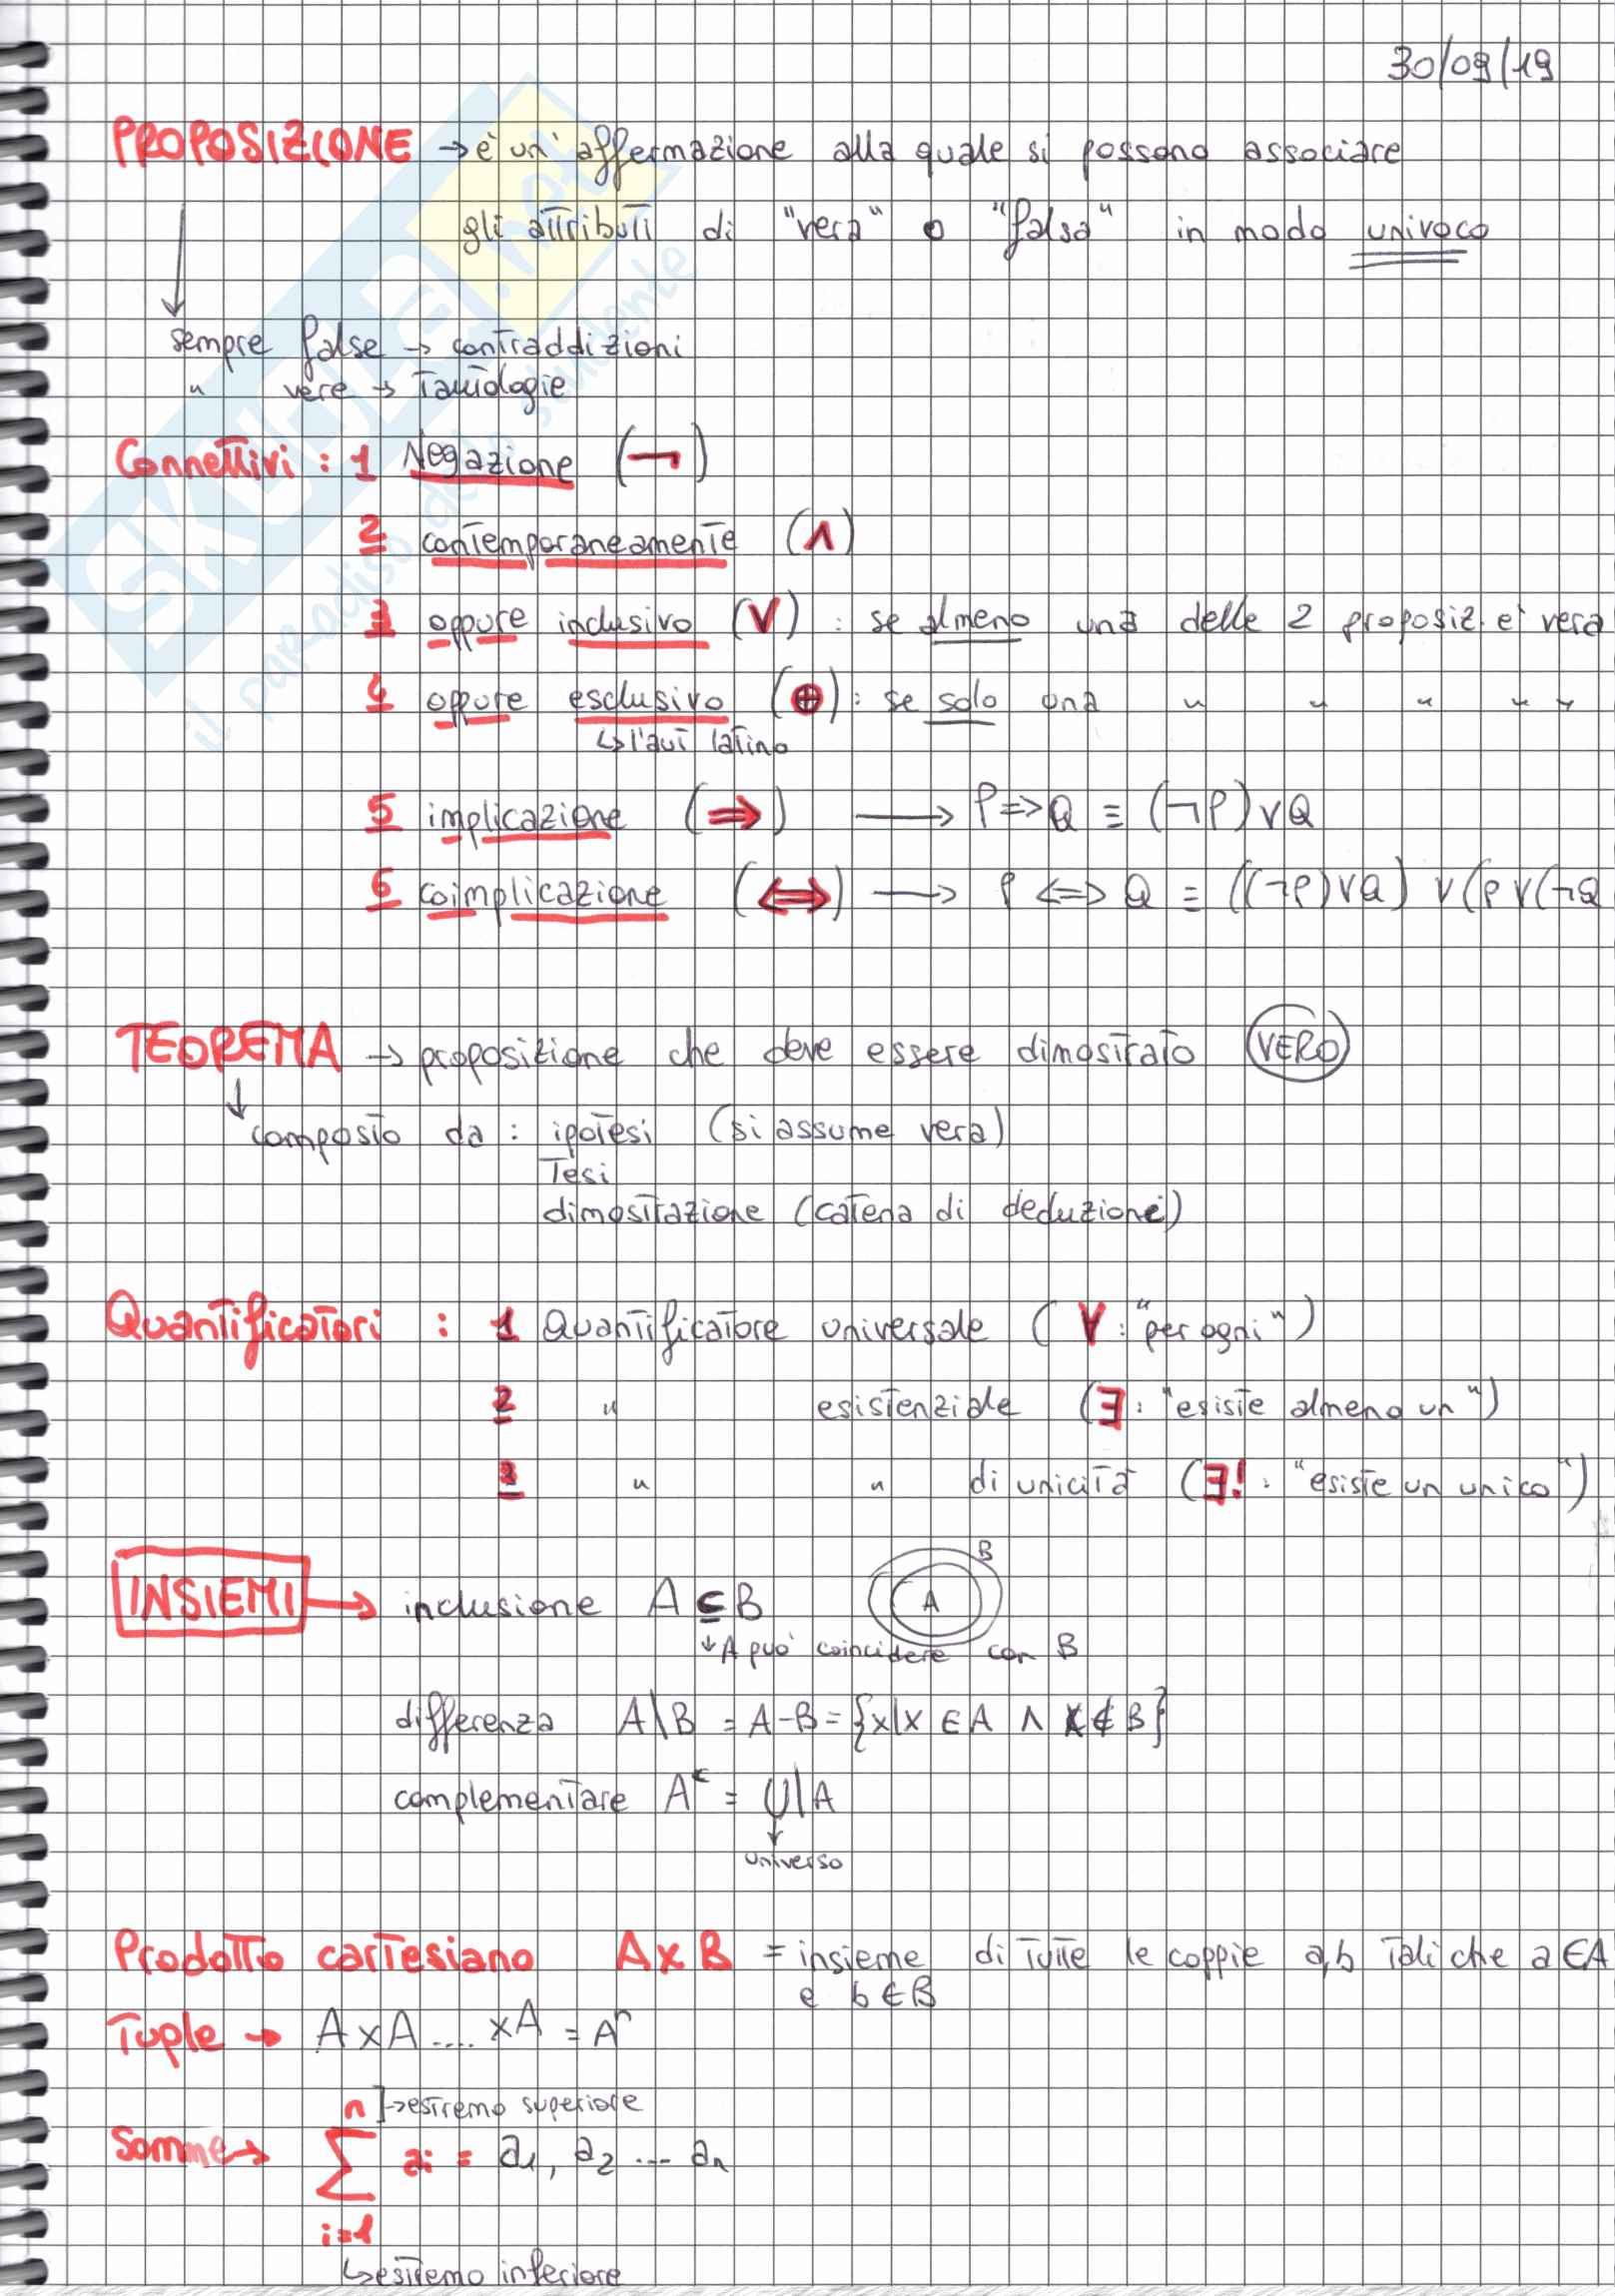 30/09/19
PROPOSIZIONE → è un'affermazione alla quale si possono associare
gli attributi di "vera" o "falsa" in modo univoco
sempre false → contraddizioni
" vere → Tautologie
Connettivi : 1 Negazione (¬)
2 contemporaneamente (∧)
3 oppure inclusivo (∨) : se almeno una delle 2 proposiz. e' vera
4 oppure esclusivo (⊕) : se solo una " " " " "
↳ l'aut latino
5 implicazione (⇒) → P => Q ≡ (¬P) ∨ Q
6 coimplicazione (⇔) → P <=> Q ≡ ((¬P) ∨ Q) ∨ (P ∨ (¬Q
TEOREMA → proposizione che deve essere dimostrato VERO
composto da : ipotesi (si assume vera)
Tesi
dimostrazione (catena di deduzioni)
Quantificatori : 1 Quantificatore universale ( ∀ : "per ogni")
2 " esistenziale (∃ : "esiste almeno un")
3 " " di unicità (∃! : "esiste un unico")
INSIEMI → inclusione A ⊆ B A B
↓ A può coincidere con B
differenza A\B = A-B = {x|x ∈ A ∧ x ∉ B}
complementare Aᶜ = U\A
universo
Prodotto cartesiano A x B = insieme di tutte le coppie a,b Tali che a ∈ A
e b ∈ B
Tuple → A x A .... x A = Aⁿ
n ]→ estremo superiore
Somme → ∑ ai = a1, a2 ... an
i=1
↳ estremo inferiore
SKUOLA.net
il paradiso dello studente